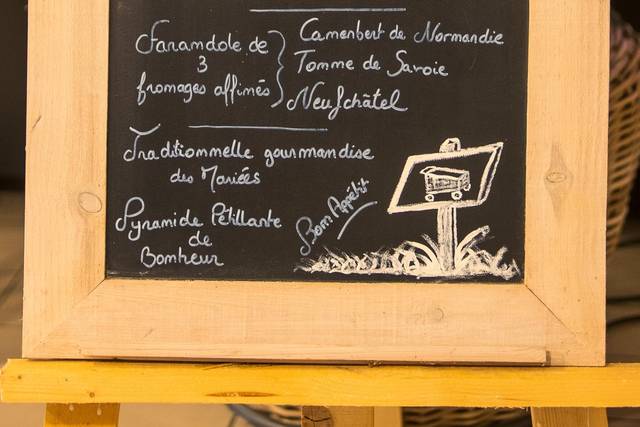 Farandole de
3
fromages affinés
Camembert de Normandie
Tomme de Savoie
Neufchâtel
Traditionnelle gourmandise
des Mariées
Pyramide Pétillante
de
Bonheur
Bon Appétit